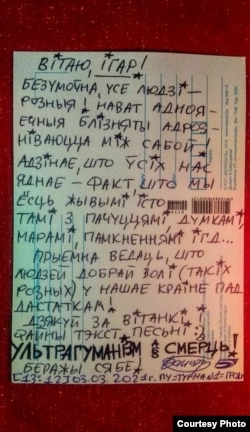 ВІТАЮ, ІГАР!
БЕЗУМОЎНА, УСЕ ЛЮДЗІ –
РОЗНЫЯ! НАВАТ АДНОЯ –
ЕЧНЫЯ БЛІЗНЯТЫ АДРОЗ –
НІВАЮЦЦА МІЖ САБОЙ!
АДЗІНАЕ, ШТО ЎСІХ НАС
ЯДНАЕ – ФАКТ, ШТО МЫ
ЁСЦЬ ЖЫВЫМІ ІСТО
ТАМІ З ПАЧУЦЦЯМІ, ДУМКАМІ,
МАРАМІ, ПАМКНЕННЯМІ І Г.Д...
ПРЫЕМНА ВЕДАЦЬ, ШТО
ЛЮДЗЕЙ ДОБРАЙ ВОЛІ (ТАКІХ
РОЗНЫХ) У НАШАЕ КРАІНЕ ПАД
ДАСТАТКАМ!
ДЗЯКУЙ ЗА ВІТАНКІ &
ФАЙНЫ ТЭКСТ ПЕСЬНІ :)
УЛЬТРАГУМАНІЗМ СМЕРЦЬ!
БЕРАЖЫ СЯБЕ.
[13:12] 03.03.2021г.
Courtesy Photo